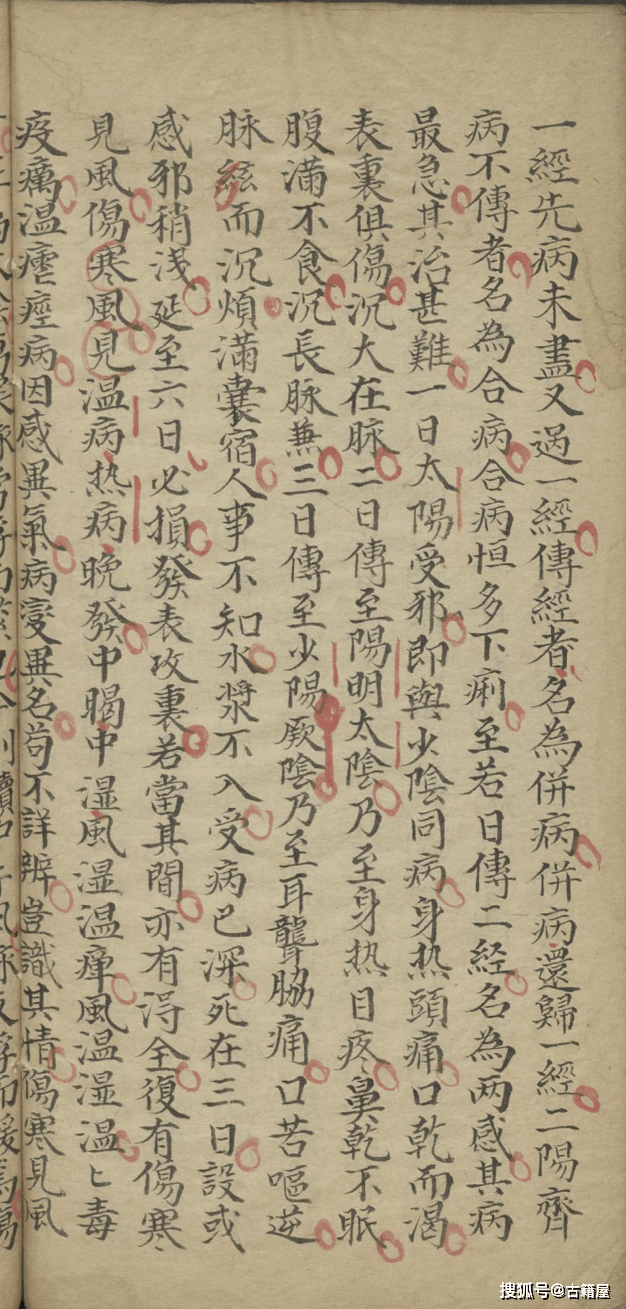 一經先病未盡又過一經傳經者名為併病併病還歸一經二陽齊
病不傳者名為合病合病恒多下痢至若日傳二経名為两感其病
最急其治甚難一日太陽受邪即與少陰同病身热頭痛口乾而渴
表裏俱傷沉大在脉二日傳至陽明太陰乃至身热目疼鼻乾不眠
腹滿不食沉長脉兼三日傳至少陽厥陰乃至耳聾脇痛口苦嘔逆
脉絃而沉煩滿囊宿人事不知水漿不入受病已深死在三日設或
感邪稍浅延至六日必損發表攻裏若當其間亦有淂全復有傷寒
見風傷寒風見温病热病晚發中暍中湿風湿温瘴風温湿温匕毒
疫癘温瘧痙病因感異氣病变異名苟不詳辨豈識其情傷寒見風
搜狐号@古籍屋